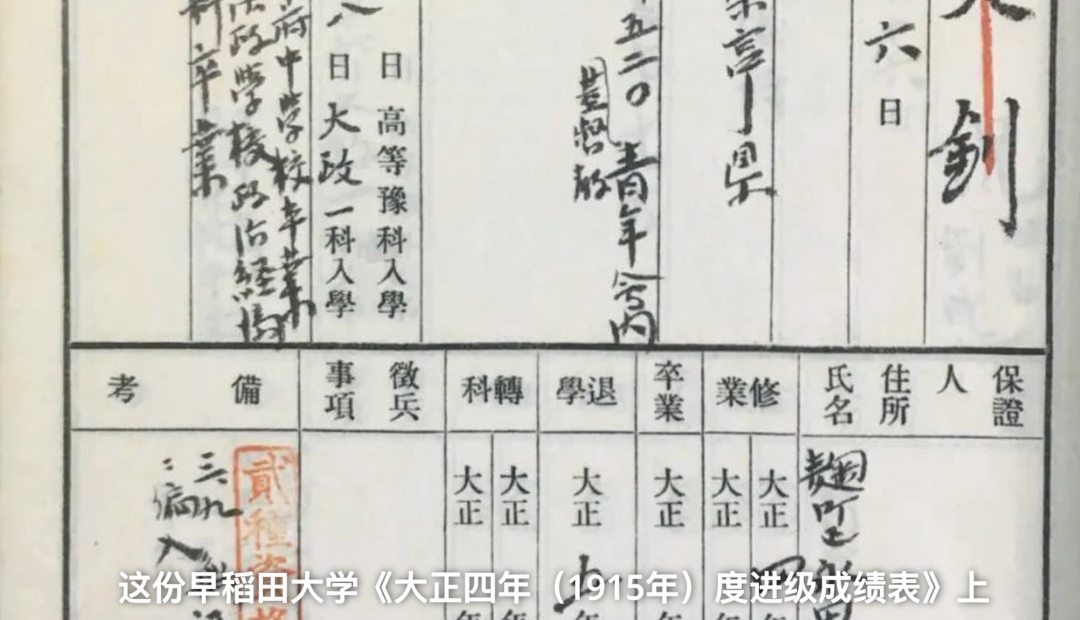 大釗
六日
京亭県
五二〇青年会内
基督教
日高等豫科入學
八日大政一科入學
府中学校卒業
法政学校政治経済
科卒業
保證人
住所
氏名
修業
卒業
退學
轉科
徴兵事項
備考
麹町
大正 四
大正
大正
大正 五年
大正
大正
貳種資格
編入
这份早稻田大学《大正四年（1915年）度进级成绩表》上